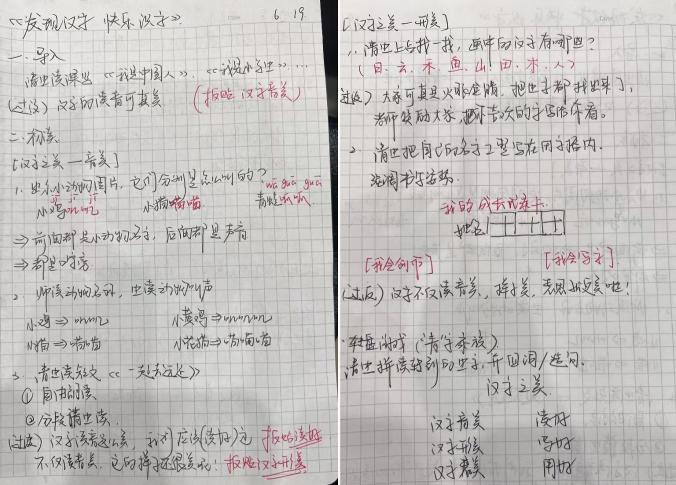 《发现汉字 快乐汉字》 6.19
一.导入
请生读课文《我是中国人》、《我是小学生》…
(过渡) 汉字的读音可真美 (板贴 汉字音美)
二.新读
[汉字之美—音美]
1. 出示小动物图片,它们分别是怎么叫的?
小鸡 小猫喵喵 青蛙呱呱 guā guā
⇒ 前面都是小动物名字,后面都是声音
⇒ 都是口字旁
2. 师读动物名称,生读动物叫声
小鸡⇒ 小黄鸡⇒
小猫⇒喵喵 小花猫⇒喵喵喵
3. 请生读短文《
① 自由朗读
② 分段请生读
(过渡) 汉字读音这么美,我们应该(读好)它 板贴读好
不仅读音美,它的样子还很美呢! 板贴汉字形美
[汉字之美—形美]
1. 请生上台找一找,画中的汉字有哪些?
(日、云、木、鱼、山、田、禾、人)
过渡) 大家可真是火眼金睛,把生字都找出来了,
老师奖励大家,把 喜欢的字写给 看。
2. 请生把自己的名字工整写在田字格内.
我的成长记录卡
姓名
[我会 ] [我会写字]
(过渡) 汉字不仅读音美,样子美,意思也很美呢!
转盘游戏 (青字家族)
请生拼读转到的生字,并组词/造句.
汉字之美
汉字音美 读好
汉字形美 写好
汉字意美 用好